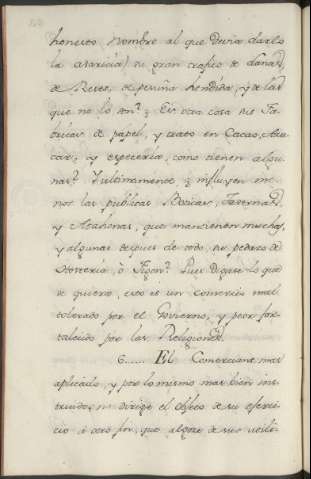 honesto nombre al que devia darlo
la avaricia) su gran trafico de Lanas,
de Reses, de pesuña hendida, y de las
que no lo son? ¿Es otra cosa sus Fa-
bricas de papel, y trato en Cacao, Azu-
car, y especeria, como tienen algu-
nas? Y ultimamente ¿influyen me-
nos las publicas Boticas, Tavernas,
y Atahonas, que mantienen muchas,
y algunas despues de todo, su pedazo de
Osteria, ò Figon? Pues digase lo que
se quiera, esto es un comercio mal
tolerado por el Govierno, y peor for-
talecido por las Religiones.
6...... El Comerciante mas
aplicado, y por lo mismo mas bien ins-
truido, no dirige el objeto de su exerci-
cio à otro fin, que al goze de sus utili-